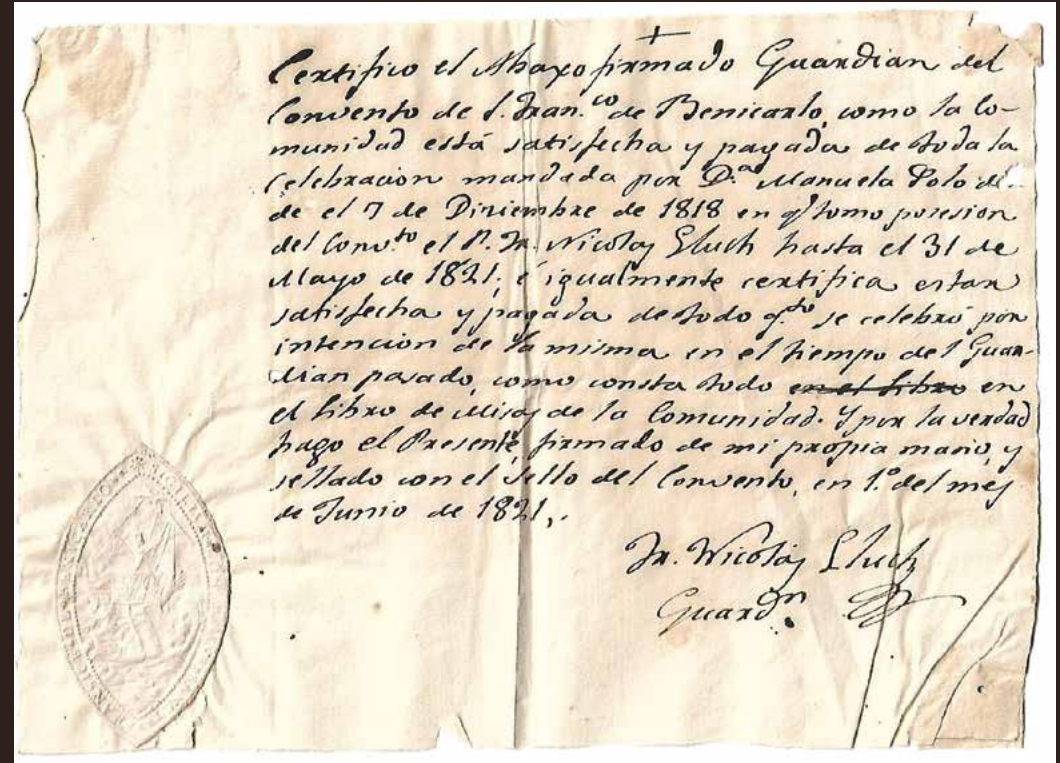 +
Certifico el Abaxo firmado Guardian del
Convento de S. Fran.co de Benicarlo, como la Co-
munidad está satisfecha y pagada de toda la
Celebracion mandada por D.a Manuela Polo des-
de el 7 de Diziembre de 1818 en q.e tomo posesion
del Conv.to el P. Fr. Nicolas Lluch hasta el 31 de
Mayo de 1821; é igualmente certifica estar
satisfecha y pagada de todo q.to se celebró por
intencion de la misma en el tiempo del Guar-
dian pasado, como consta todo en el libro en
el libro de Misas de la Comunidad. Y por la verdad
hago el Presente, firmado de mi propia mano, y
sellado con el Sello del Convento, en 1.o del mes
de Junio de 1821,.
Fr. Nicolas Lluch
Guard.n